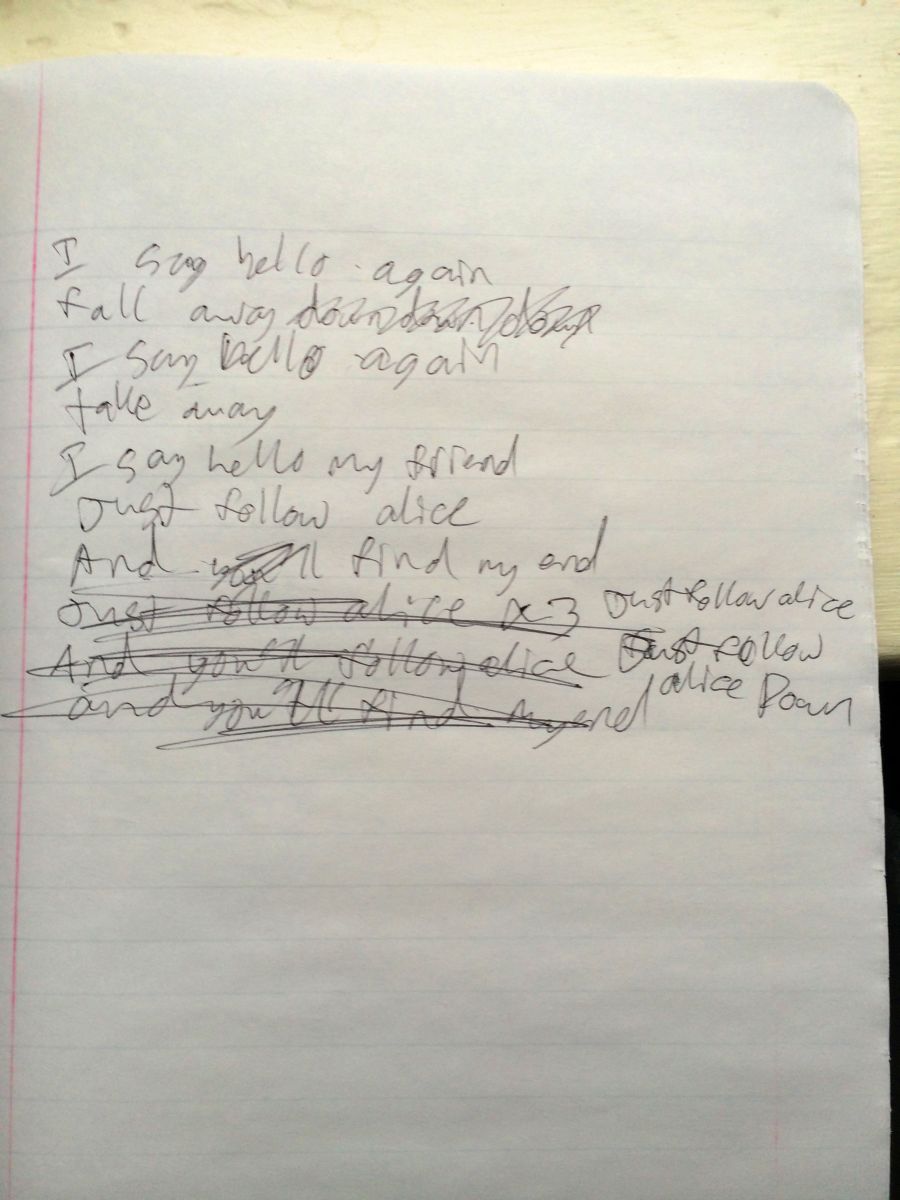 I say hello again
fall away down down down
I say hello again
take away
I say hello my friend
Just follow alice
And you'll find my end
Just follow alice x3 Just follow alice
And you'll follow alice Just follow
and you'll find my end alice Down